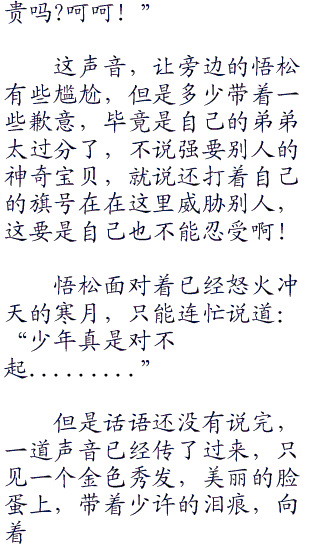 贵吗?呵呵！”
这声音，让旁边的悟松
有些尴尬，但是多少带着一
些歉意，毕竟是自己的弟弟
太过分了，不说强要别人的
神奇宝贝，就说还打着自己
的旗号在在这里威胁别人，
这要是自己也不能忍受啊！
悟松面对着已经怒火冲
天的寒月，只能连忙说道：
“少年真是对不
起．．．．．．．．．”
但是话语还没有说完，
一道声音已经传了过来，只
见一个金色秀发，美丽的脸
蛋上，带着少许的泪痕，向
着